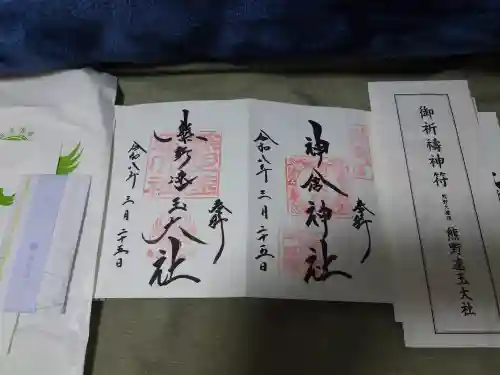 御祈禱神符
熊野速玉大社
奉拝
神倉神社
令和八年三月二十五日
奉拝
熊野速玉大社
令和八年三月二十五日